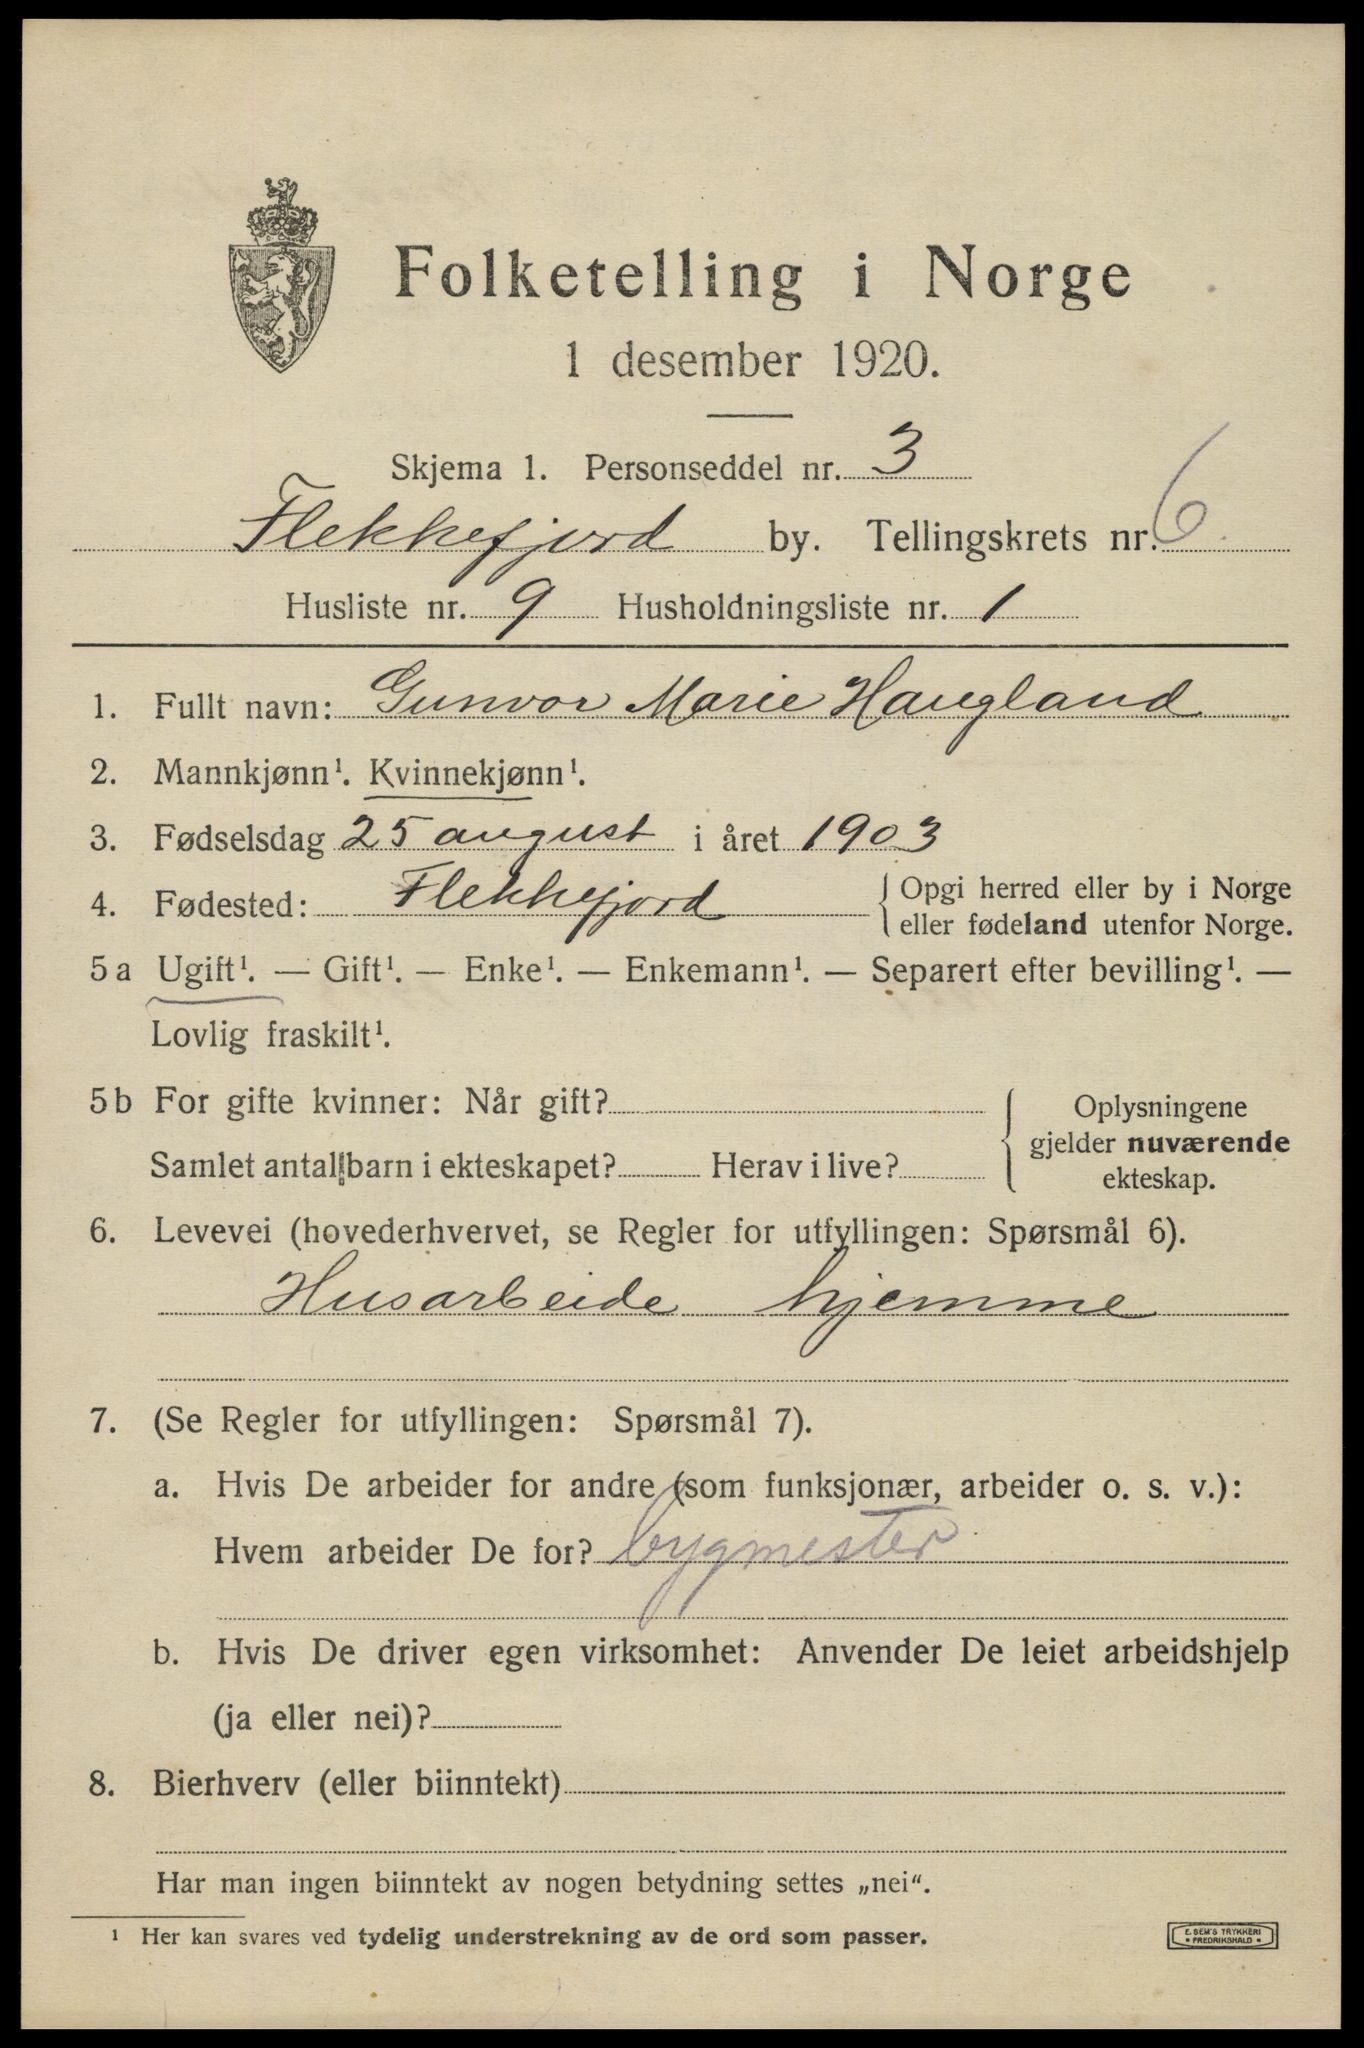 Folketelling i Norge
1 desember 1920.
Skjema 1. Personseddel nr. 3
Flekkefjord by. Tellingskrets nr. 6
Husliste nr. 9 Husholdningsliste nr. 1
1. Fullt navn: Gunvor Marie Haugland
2. Mannkjønn¹. Kvinnekjønn¹.
3. Fødselsdag 25 august i året 1903
4. Fødested: Flekkefjord { Opgi herred eller by i Norge
eller fødeland utenfor Norge.
5 a Ugift¹. — Gift¹. — Enke¹. — Enkemann¹. — Separert efter bevilling¹. —
Lovlig fraskilt¹.
5 b For gifte kvinner: Når gift? { Oplysningene
gjelder nuværende
ekteskap.
Samlet antall barn i ekteskapet? Herav i live?
6. Levevei (hovederhvervet, se Regler for utfyllingen: Spørsmål 6).
Husarbeide hjemme
7. (Se Regler for utfyllingen: Spørsmål 7).
a. Hvis De arbeider for andre (som funksjonær, arbeider o. s. v.):
Hvem arbeider De for? bygmester
b. Hvis De driver egen virksomhet: Anvender De leiet arbeidshjelp
(ja eller nei)?
8. Bierhverv (eller biinntekt)
Har man ingen biinntekt av nogen betydning settes „nei“.
¹ Her kan svares ved tydelig understrekning av de ord som passer.
E. SEM'S TRYKKERI
• FREDRIKSHALD •